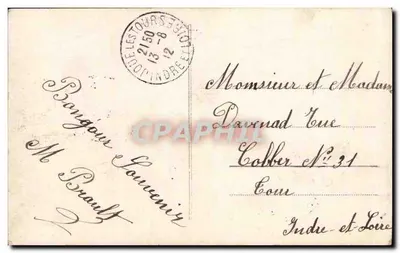 JOUÉ LES TOURS
INDRE ET LOIRE
2150
13 -8
12
Bonjour Souvenir
M Brault
Monsieur et Madam
Davenad Rue
Colber Nº 31
Tour
Indre-et-Loire
CARTE